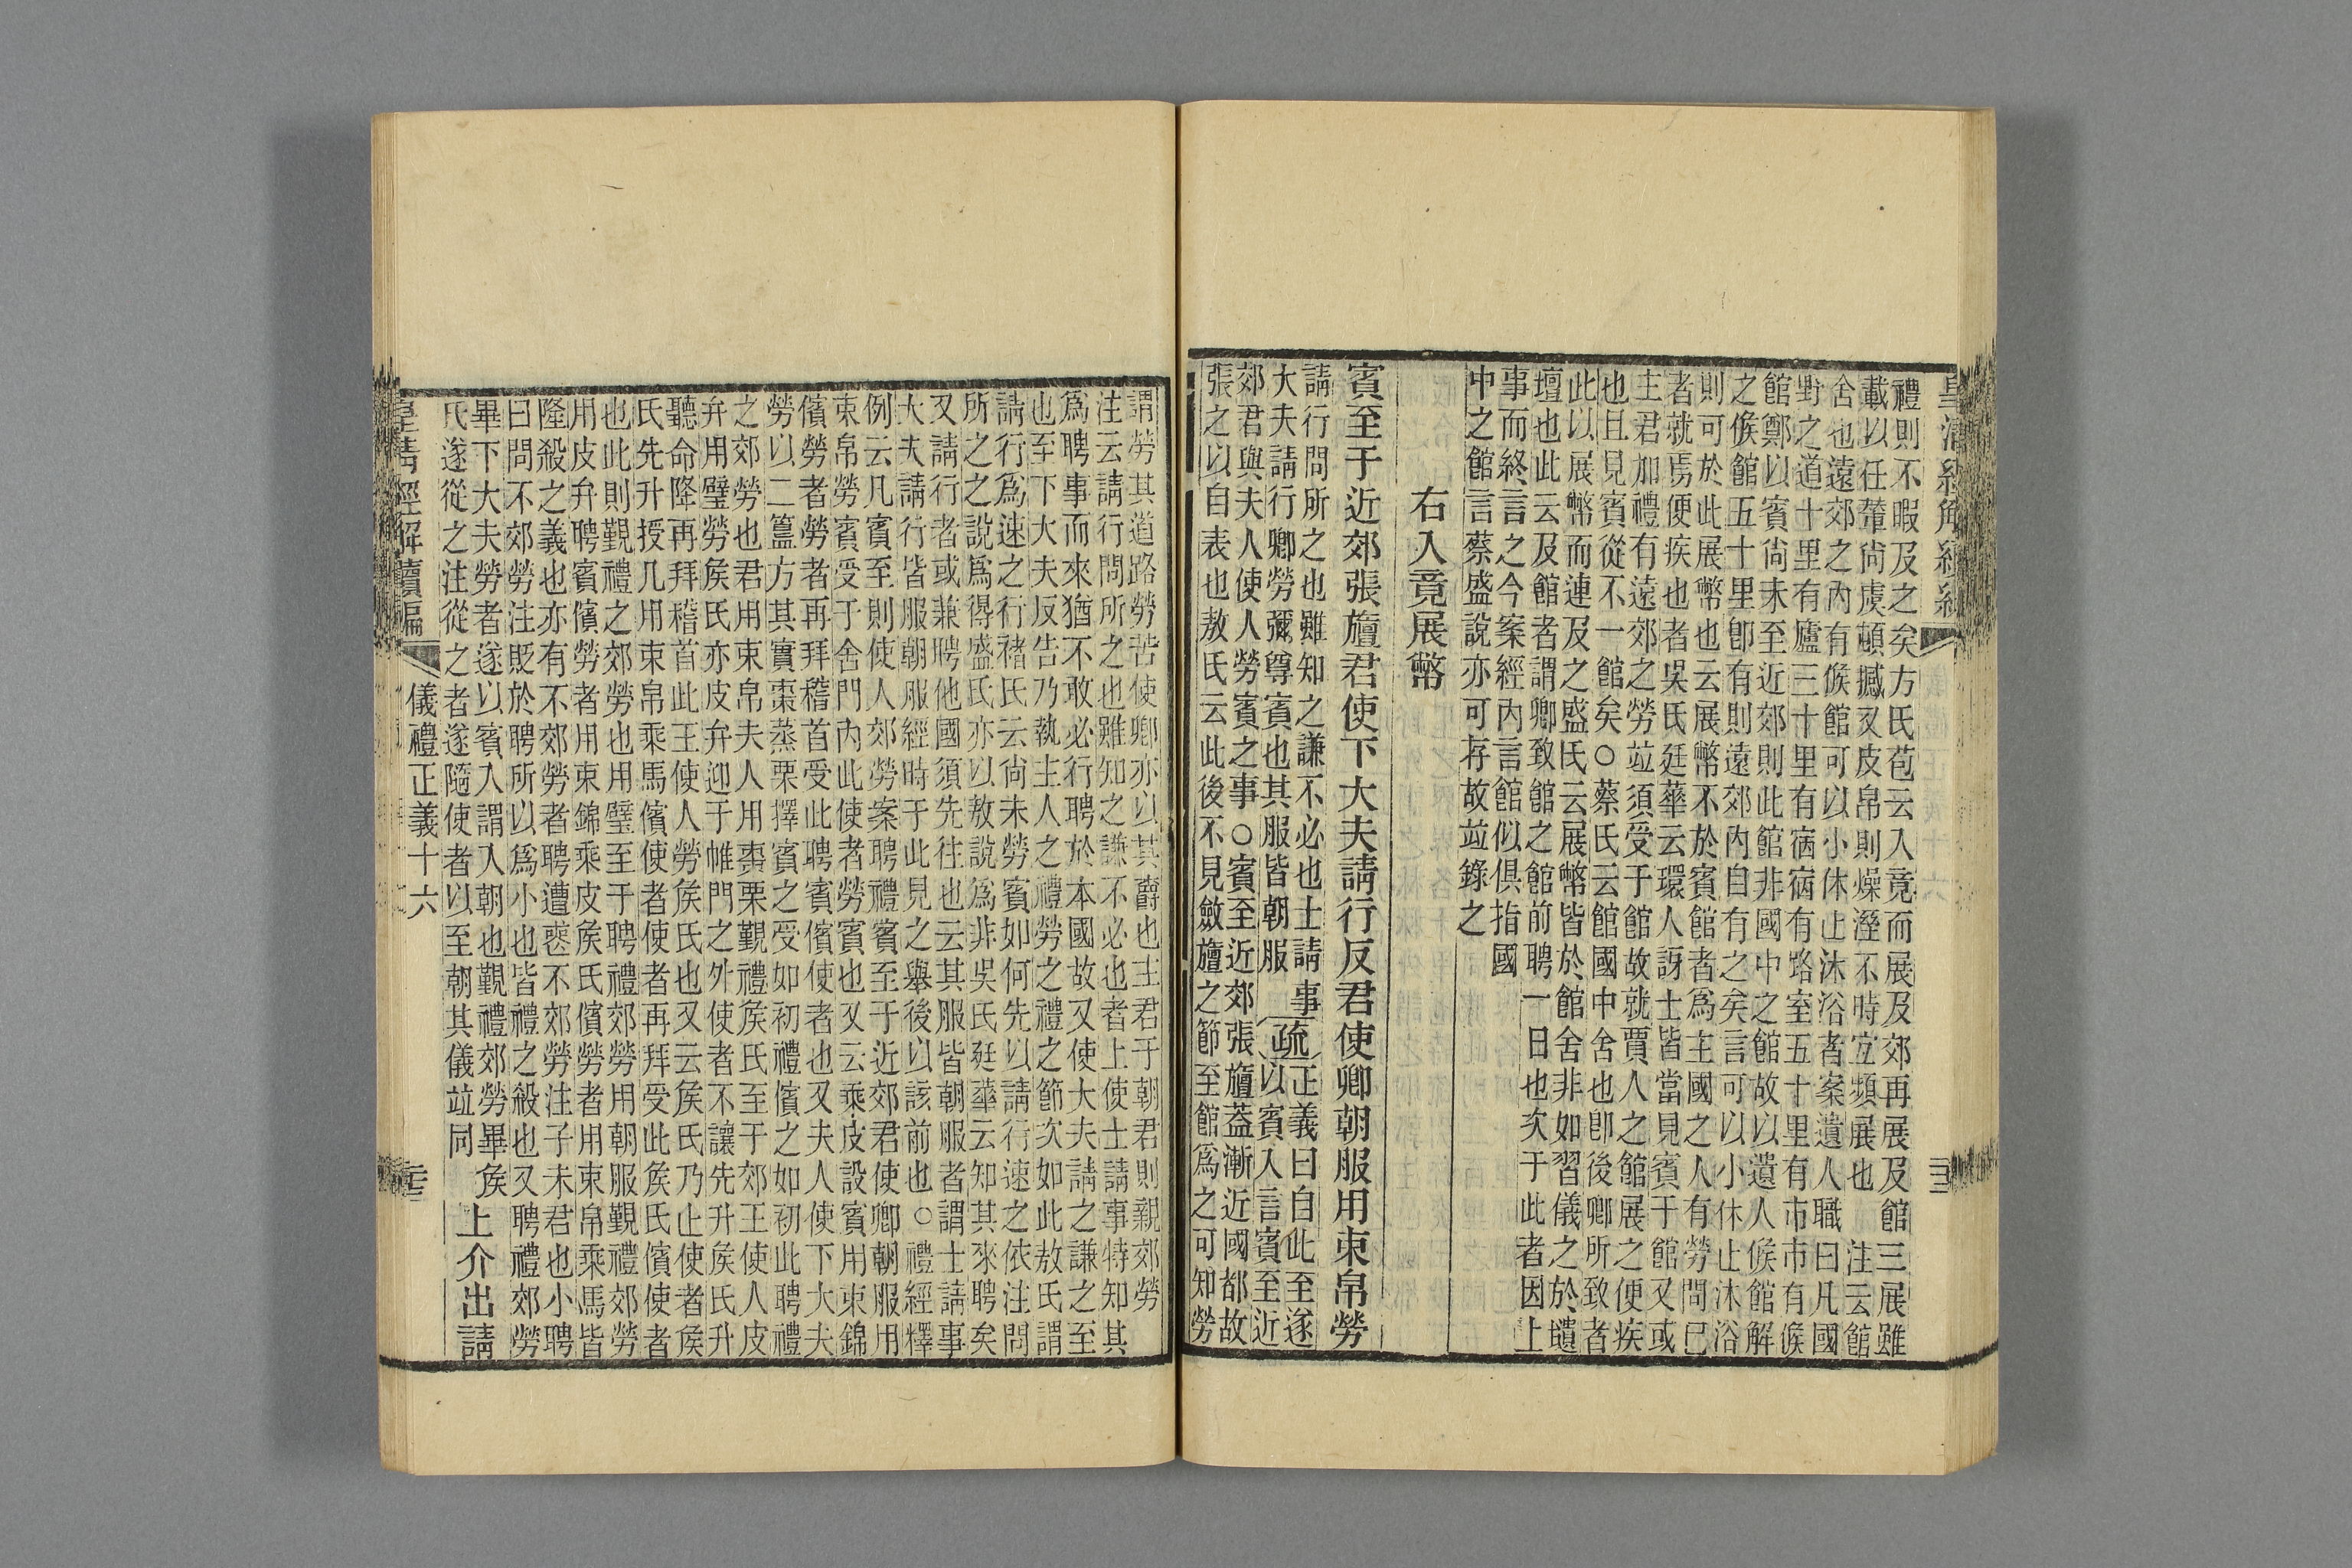 禮則不暇及之矣方氏苞云入竟而展及郊再展及館三展雖
載以任輦尙虞頓撼又皮帛則燥溼不時宜頻展也　注云館
舍也遠郊之內有候館可以小休止沐浴者案遺人職曰凡國
野之道十里有廬三十里有宿宿有路室五十里有市市有候
館鄭以賓尙未至近郊則此館非國中之館故以遺人候館解
之候館五十里卽有則遠郊內自有之矣言可以小休止沐浴
則可於此展幣也云展幣不於賓館者爲主國之人有勞問已
者就焉便疾也者吳氏廷華云環人訝士皆當見賓于館又或
主君加禮有遠郊之勞竝須受于館故就賈人之館展之便疾
也且見賓從不一館矣○蔡氏云館國中舍也卽後卿所致者
此以展幣而連及之盛氏云展幣皆於館舍非如習儀之於壝
壇也此云及館者謂卿致館之館前聘一日也次于此者因上
事而終言之今案經內言館似俱指國
中之館言蔡盛說亦可存故竝錄之
右入竟展幣
賓至于近郊張旜君使下大夫請行反君使卿朝服用束帛勞
請行問所之也雖知之謙不必也士請事
大夫請行卿勞彌尊賓也其服皆朝服
疏
正義曰自此至遂
以賓入言賓至近
郊君與夫人使人勞賓之事○賓至近郊張旜蓋漸近國都故
張之以自表也敖氏云此後不見斂旜之節至館爲之可知勞
謂勞其道路勞苦使卿亦以其爵也主君于朝君則親郊勞
注云請行問所之也雖知之謙不必也者上使士請事特知其
爲聘事而來猶不敢必行聘於本國故又使大夫請之謙之至
也至下大夫反告乃執主人之禮勞之禮之節次如此敖氏謂
請行爲速之行褚氏云尙未勞賓如何先以請行速之依注問
所之之說爲得盛氏亦以敖說爲非吳氏廷華云知其來聘矣
又請行者或兼聘他國須先往也云其服皆朝服者謂士請事
大夫請行皆服朝服經時于此見之舉後以該前也○禮經釋
例云凡賓至則使人郊勞案聘禮賓至于近郊君使卿朝服用
束帛勞賓受于舍門內此使者勞賓也又云乘皮設賓用束錦
儐勞者勞者再拜稽首受此聘賓儐使者也又夫人使下大夫
勞以二簋方其實棗蒸栗擇賓之受如初禮儐之如初此聘禮
之郊勞也君用束帛夫人用棗栗覲禮矦氏至于郊王使人皮
弁用璧勞矦氏亦皮弁迎于帷門之外使者不讓先升矦氏升
聽命降再拜稽首此王使人勞矦氏也又云矦氏乃止使者矦
氏先升授几用束帛乘馬儐使者使者再拜受此矦氏儐使者
也此則覲禮之郊勞也用璧至于聘禮郊勞用朝服覲禮郊勞
用皮弁聘賓儐勞者用束錦乘皮矦氏儐勞者用束帛乘馬皆
隆殺之義也亦有不郊勞者聘遭喪不郊勞注子未君也小聘
曰問不郊勞注貶於聘所以爲小也皆禮之殺也又聘禮郊勞
畢下大夫勞者遂以賓入謂入朝也覲禮郊勞畢矦
氏遂從之注從之者遂隨使者以至朝其儀竝同
上介出請
皇淸經解續編
儀禮正義十六